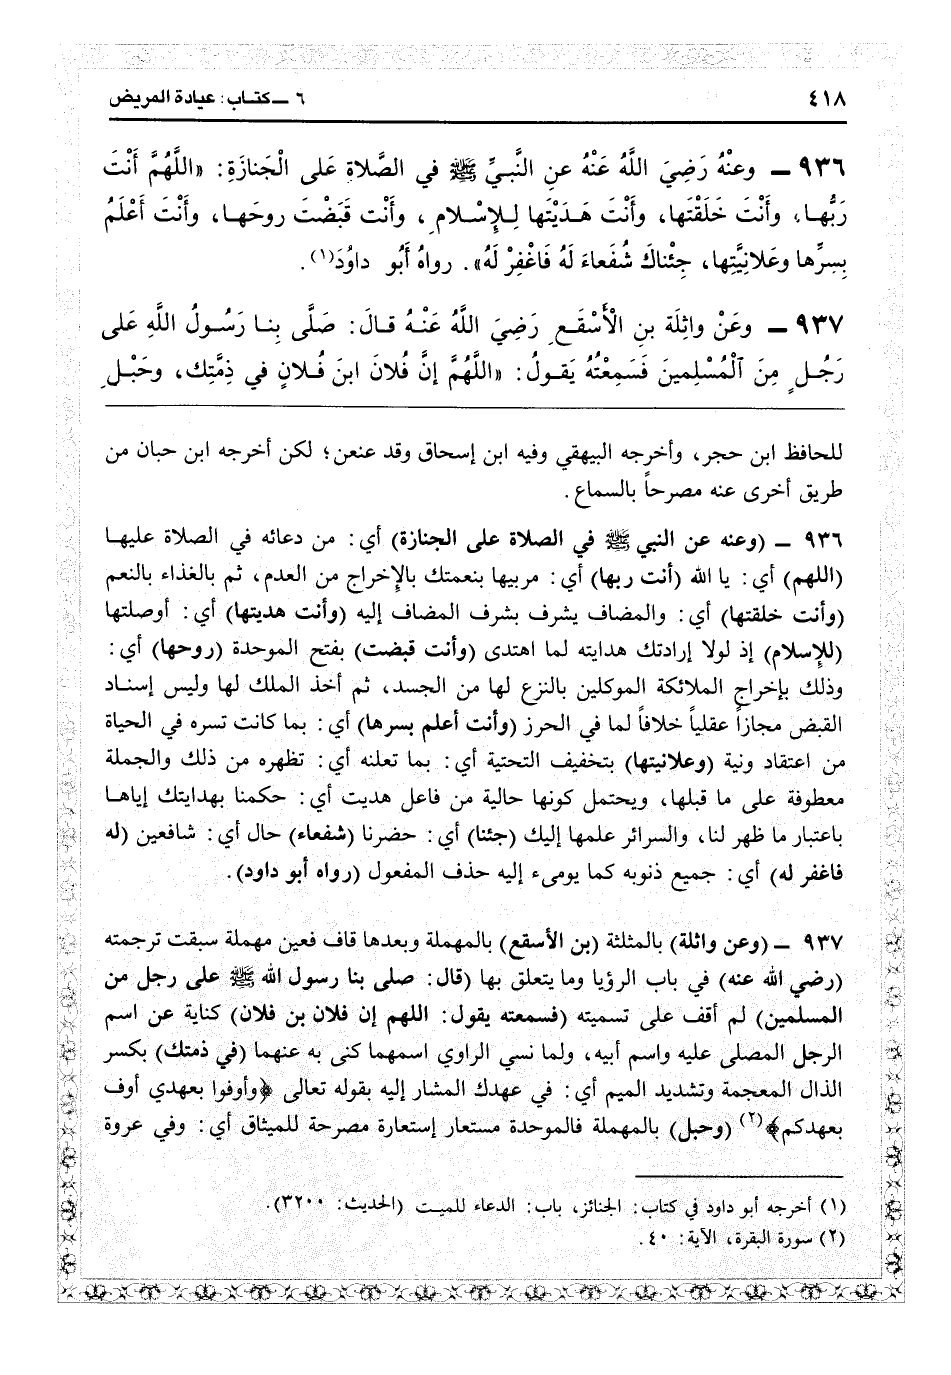 ٤١٨
٦ ــ كتاب: عيادة المريض
٩٣٦ ــ وعنْهُ رَضِيَ اللَّهُ عَنْهُ عنِ النَّبيِّ ﷺ في الصَّلاةِ عَلى الْجَنازَةِ: «اللَّهُمَّ أَنْتَ
رَبُّها، وأَنْتَ خَلَقْتَها، وأَنْتَ هَدَيْتَها لِلإِسْلامِ، وأَنْت قَبَضْتَ روحَها، وأَنْتَ أَعْلَمُ
بِسِرِّها وعَلانِيَّتِها، جِئْناكَ شُفَعاءَ لَهُ فَاغْفِرْ لَهُ». رواهُ أَبُو داوُدَ(١).
٩٣٧ ــ وعَنْ واثِلَة بنِ الْأَسْقَعِ رَضِيَ اللَّهُ عَنْهُ قالَ: صَلَّى بِنا رَسُولُ اللَّهِ عَلى
رَجُلٍ مِنَ ٱلْمُسْلِمينَ فَسَمِعْتُهُ يَقولُ: «اللَّهُمَّ إنَّ فُلانَ ابنَ فُلانٍ في ذِمَّتِك، وحَبْلِ
للحافظ ابن حجر، وأخرجه البيهقي وفيه ابن إسحاق وقد عنعن؛ لكن أخرجه ابن حبان من
طريق أخرى عنه مصرحاً بالسماع.
٩٣٦ ــ (وعنه عن النبي ﷺ في الصلاة على الجنازة) أي: من دعائه في الصلاة عليها
(اللهم) أي: يا الله (أنت ربها) أي: مربيها بنعمتك بالإخراج من العدم، ثم بالغذاء بالنعم
(وأنت خلقتها) أي: والمضاف يشرف بشرف المضاف إليه (وأنت هديتها) أي: أوصلتها
(للإسلام) إذ لولا إرادتك هدايته لما اهتدى (وأنت قبضت) بفتح الموحدة (روحها) أي:
وذلك بإخراج الملائكة الموكلين بالنزع لها من الجسد، ثم أخذ الملك لها وليس إسناد
القبض مجازاً عقلياً خلافاً لما في الحرز (وأنت أعلم بسرها) أي: بما كانت تسره في الحياة
من اعتقاد ونية (وعلانيتها) بتخفيف التحتية أي: بما تعلنه أي: تظهره من ذلك والجملة
معطوفة على ما قبلها، ويحتمل كونها حالية من فاعل هديت أي: حكمنا بهدايتك إياها
باعتبار ما ظهر لنا، والسرائر علمها إليك (جئنا) أي: حضرنا (شفعاء) حال أي: شافعين (له
فاغفر له) أي: جميع ذنوبه كما يومىء إليه حذف المفعول (رواه أبو داود).
٩٣٧ ــ (وعن واثلة) بالمثلثة (بن الأسقع) بالمهملة وبعدها قاف فعين مهملة سبقت ترجمته
(رضي الله عنه) في باب الرؤيا وما يتعلق بها (قال: صلى بنا رسول الله ﷺ على رجل من
المسلمين) لم أقف على تسميته (فسمعته يقول: اللهم إن فلان بن فلان) كناية عن اسم
الرجل المصلى عليه واسم أبيه، ولما نسي الراوي اسمهما كنى به عنهما (في ذمتك) بكسر
الذال المعجمة وتشديد الميم أي: في عهدك المشار إليه بقوله تعالى ﴿وأوفوا بعهدي أوف
بعهدكم﴾(٢) (وحبل) بالمهملة فالموحدة مستعار إستعارة مصرحة للميثاق أي: وفي عروة
(١) أخرجه أبو داود في كتاب: الجنائز، باب: الدعاء للميت (الحديث: ٣٢٠٠).
(٢) سورة البقرة، الآية: ٤٠.